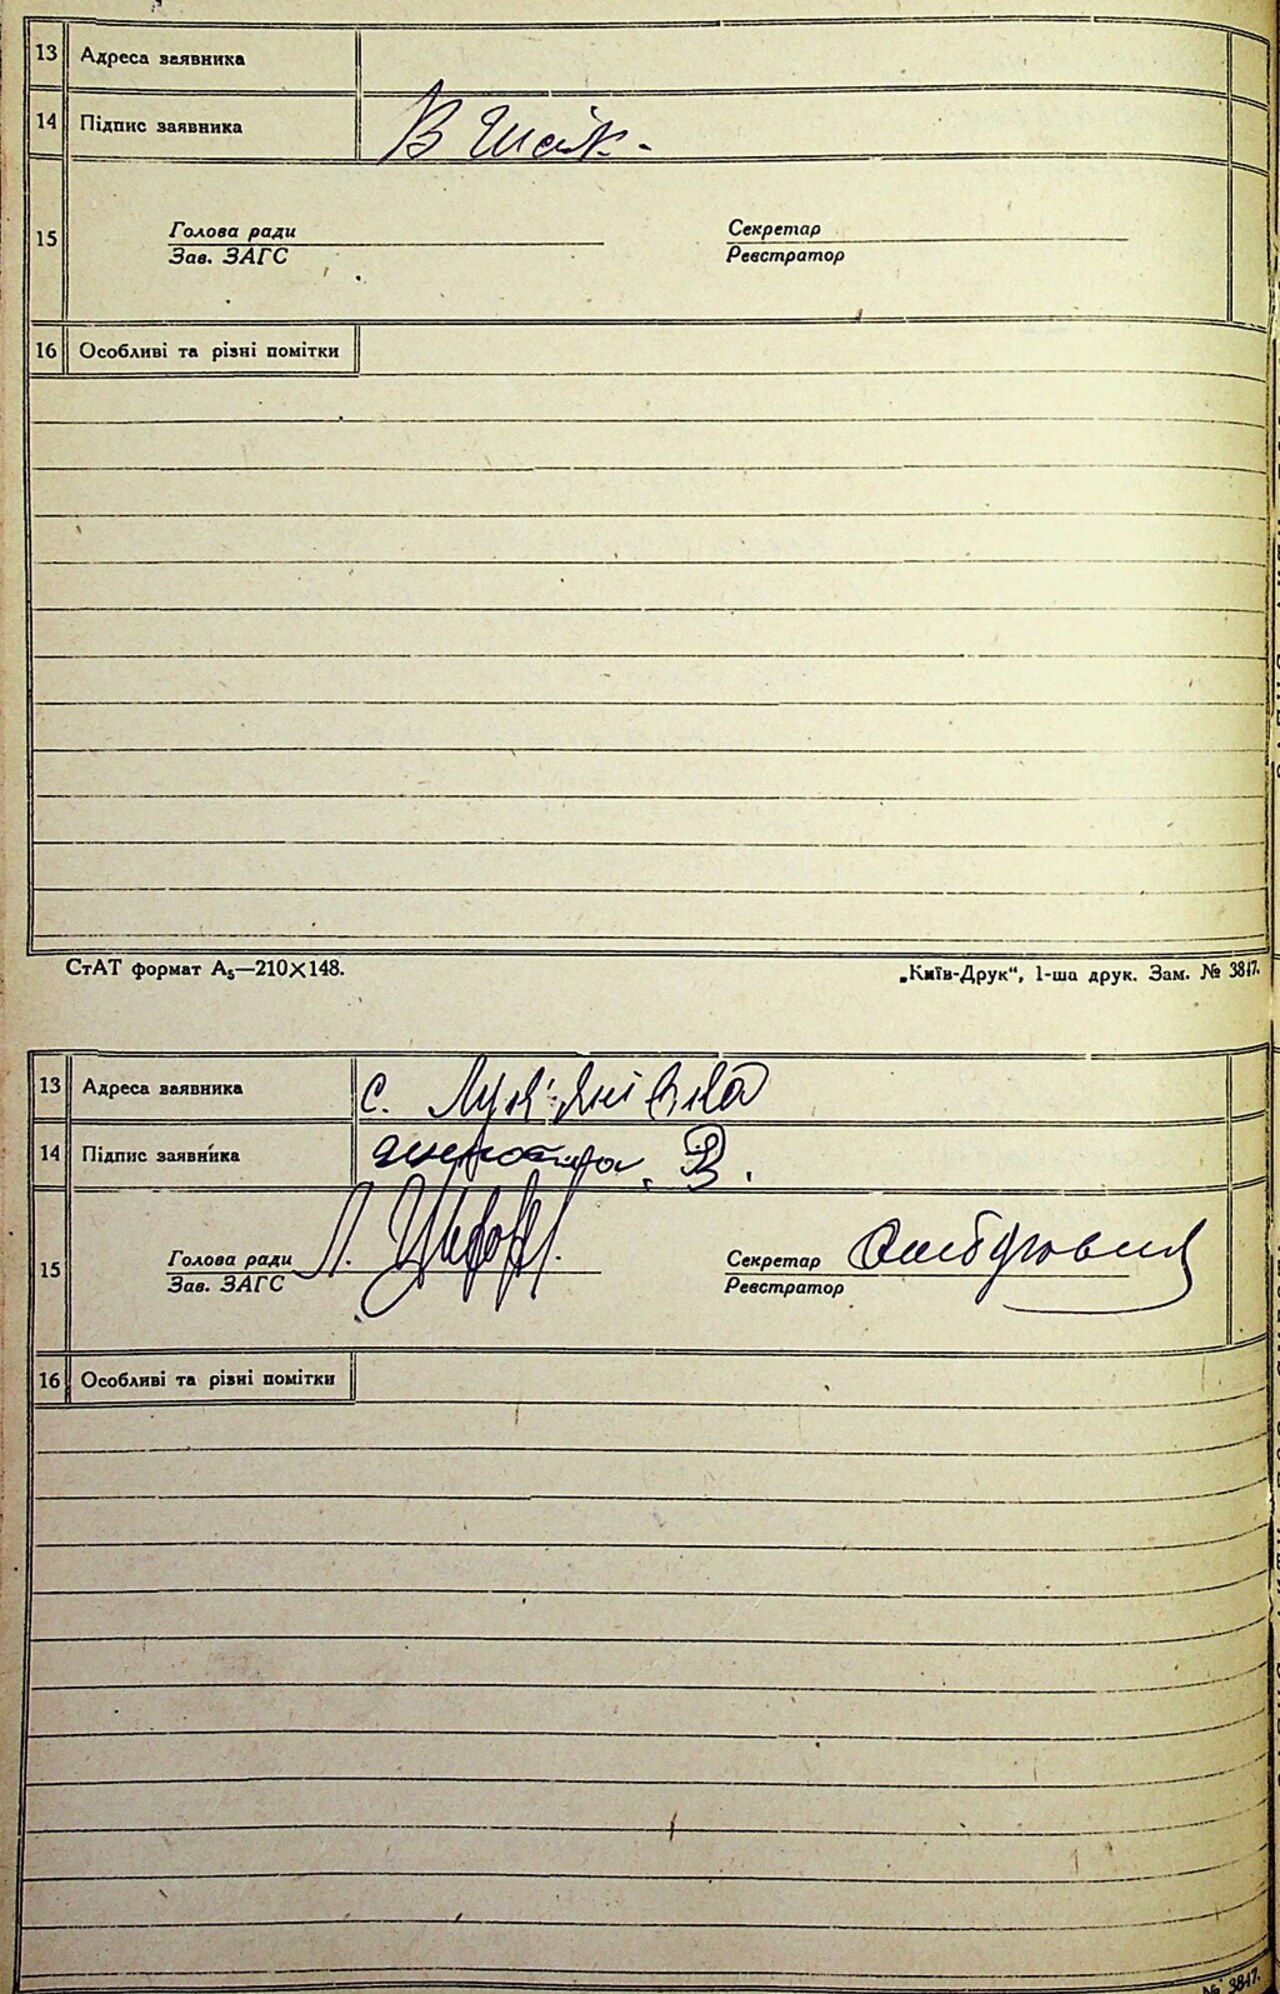 13 Адреса заявника
14 Підпис заявника В
15 Голова ради Секретар
Зав. ЗАГС Реєстратор
16 Особливі та різні помітки
СтАТ формат А₅—210×148. „Київ-Друк“, 1-ша друк. Зам. № 3817.
13 Адреса заявника с. Лук'янівка
14 Підпис заявника В.
15 Голова ради Секретар
Зав. ЗАГС Реєстратор
16 Особливі та різні помітки
№ 3817.